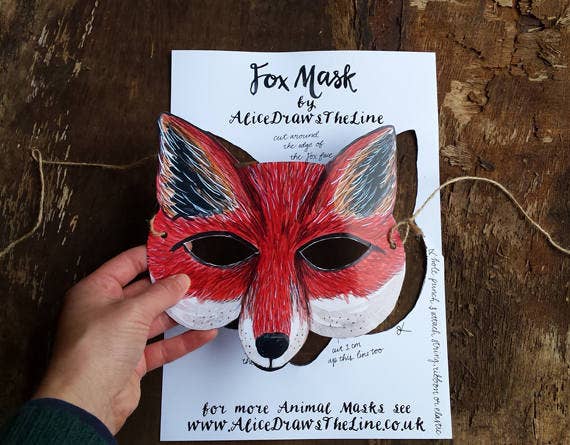 Fox Mask
by
AliceDrawsTheLine
cut around
the edge of
the fox face
cut 1 cm
up this line too
the
hole punch & attach string, ribbon or elastic
for more Animal Masks see
www.AliceDrawsTheLine.co.uk